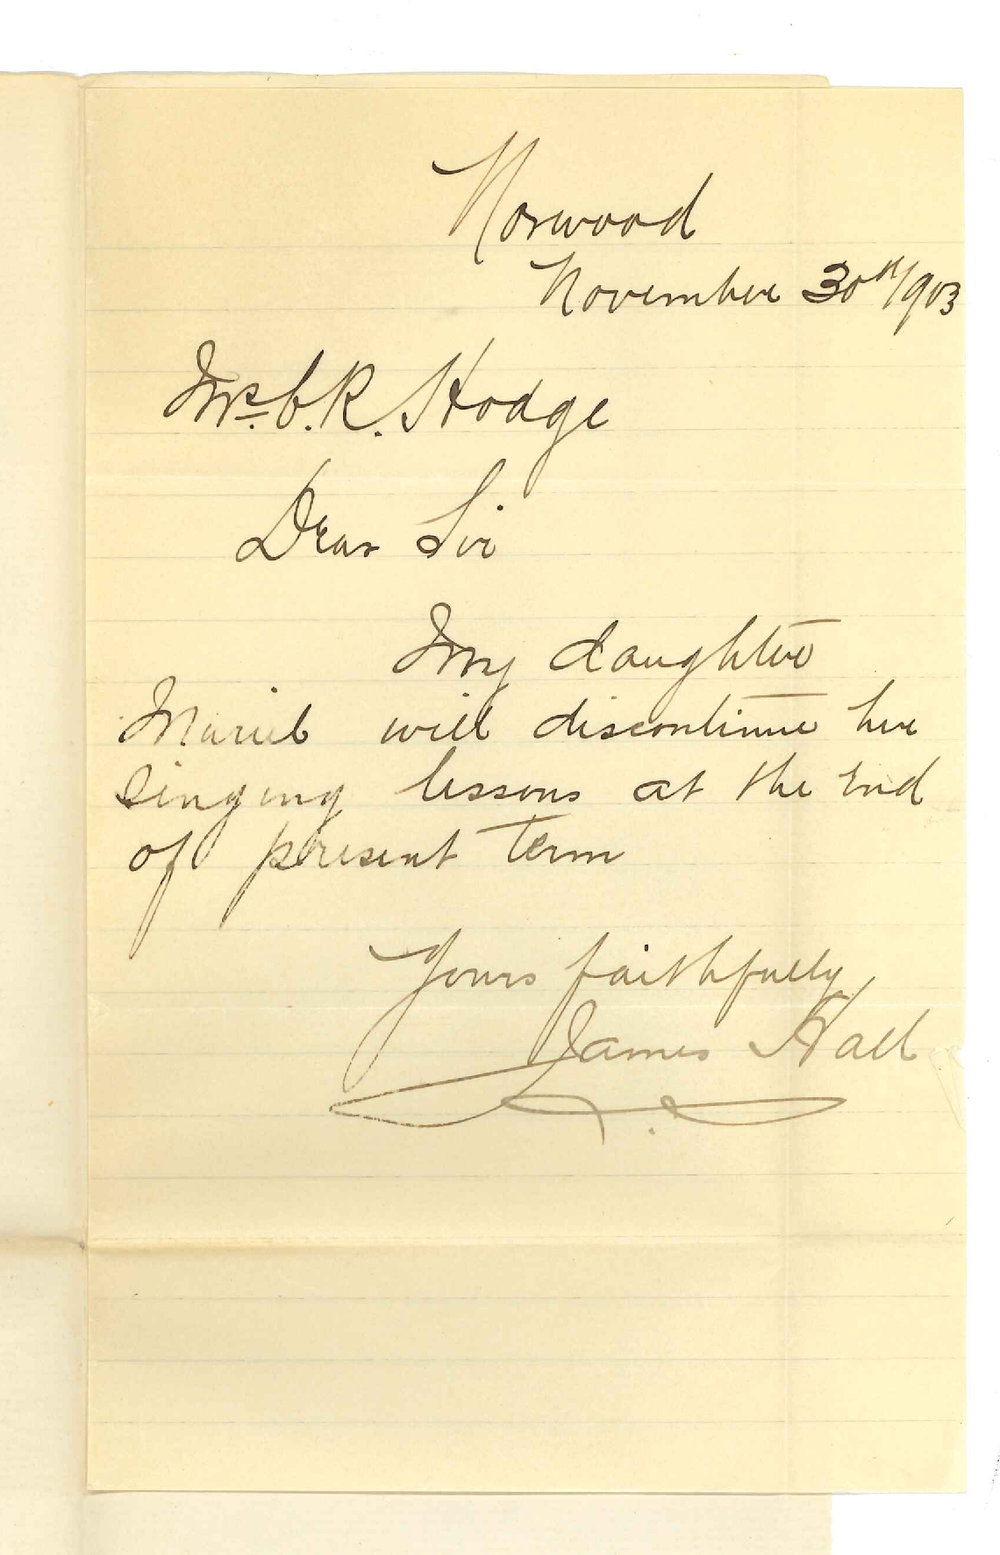 Norwood
November 30th/1903
Mr. C. R. Hodge
Dear Sir
My daughter
Muriel will discontinue her
singing lessons at the End
of present Term
Yours faithfully
James Hall